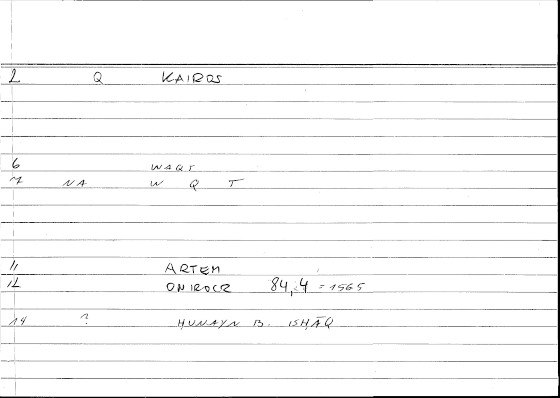 2 Q KAIROS
6 WAQT
7 NA W Q T
11 ARTEM
12 ONIROCR 84,4 = 1565
14 ? HUNAYN B. ISHĀQ